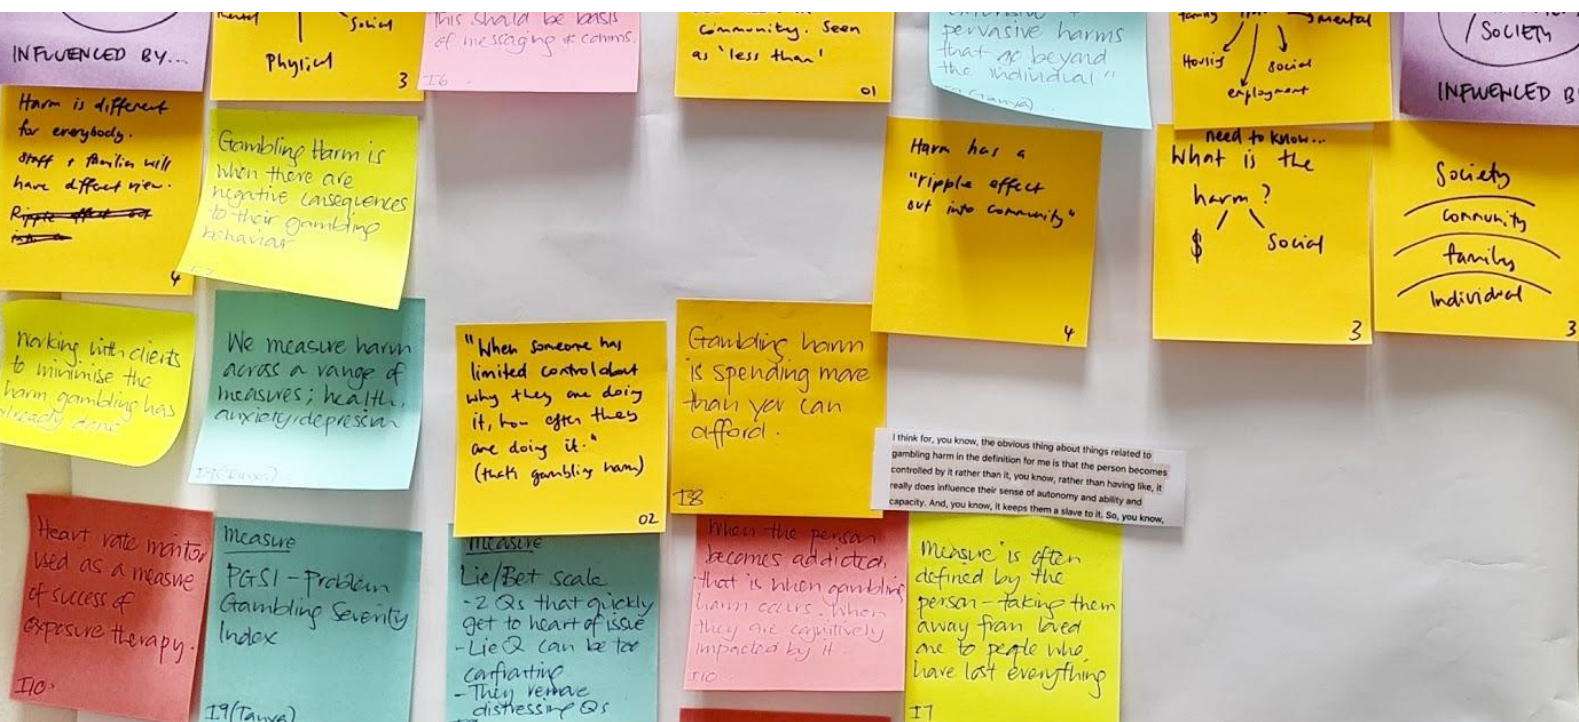 INFLUENCED BY...
Mental
Social
Physical
3
This should be basis
of messaging & comms.
I6
community. Seen
as 'less than'
01
pervasive harms
that go beyond
the individual"
(Tanya)
family
Mental
Housing
social
employment
SOCIETY
INFLUENCED B
Harm is different
for everybody.
Staff & families will
have diffent view.
4
Gambling Harm is
when there are
negative consequences
to their gambling
behaviour
Harm has a
"ripple effect
out into community"
4
need to know...
What is the
harm?
$
Social
3
Society
Community
families
Individual
3
Working with clients
to minimise the
harm gambling has
already done
We measure harm
across a range of
measures; health,
anxiety, depression
I9 (Tanya)
"When someone has
limited control about
why they are doing
it, how often they
are doing it."
(that's gambling harm)
02
Gambling harm
is spending more
than you can
afford.
I8
I think for, you know, the obvious thing about things related to
gambling harm in the definition for me is that the person becomes
controlled by it rather than it, you know, rather than having like, it
really does influence their sense of autonomy and ability and
capacity. And, you know, it keeps them a slave to it. So, you know,
Heart rate monitor
used as a measure
of success of
exposure therapy.
I10.
Measure
PGSI - Problem
Gambling Severity
Index
I9 (Tanya)
Measure
Lie/Bet scale
- 2 Qs that quickly
get to heart of issue
- Lie Q can be too
confronting
- They remove
distressing Qs
When the person
becomes addicted,
that is when gambling
harm occurs. When
they are cognitively
impacted by it.
I10
'Measure' is often
defined by the
person - taking them
away from loved
one to people who
have lost everything
I7